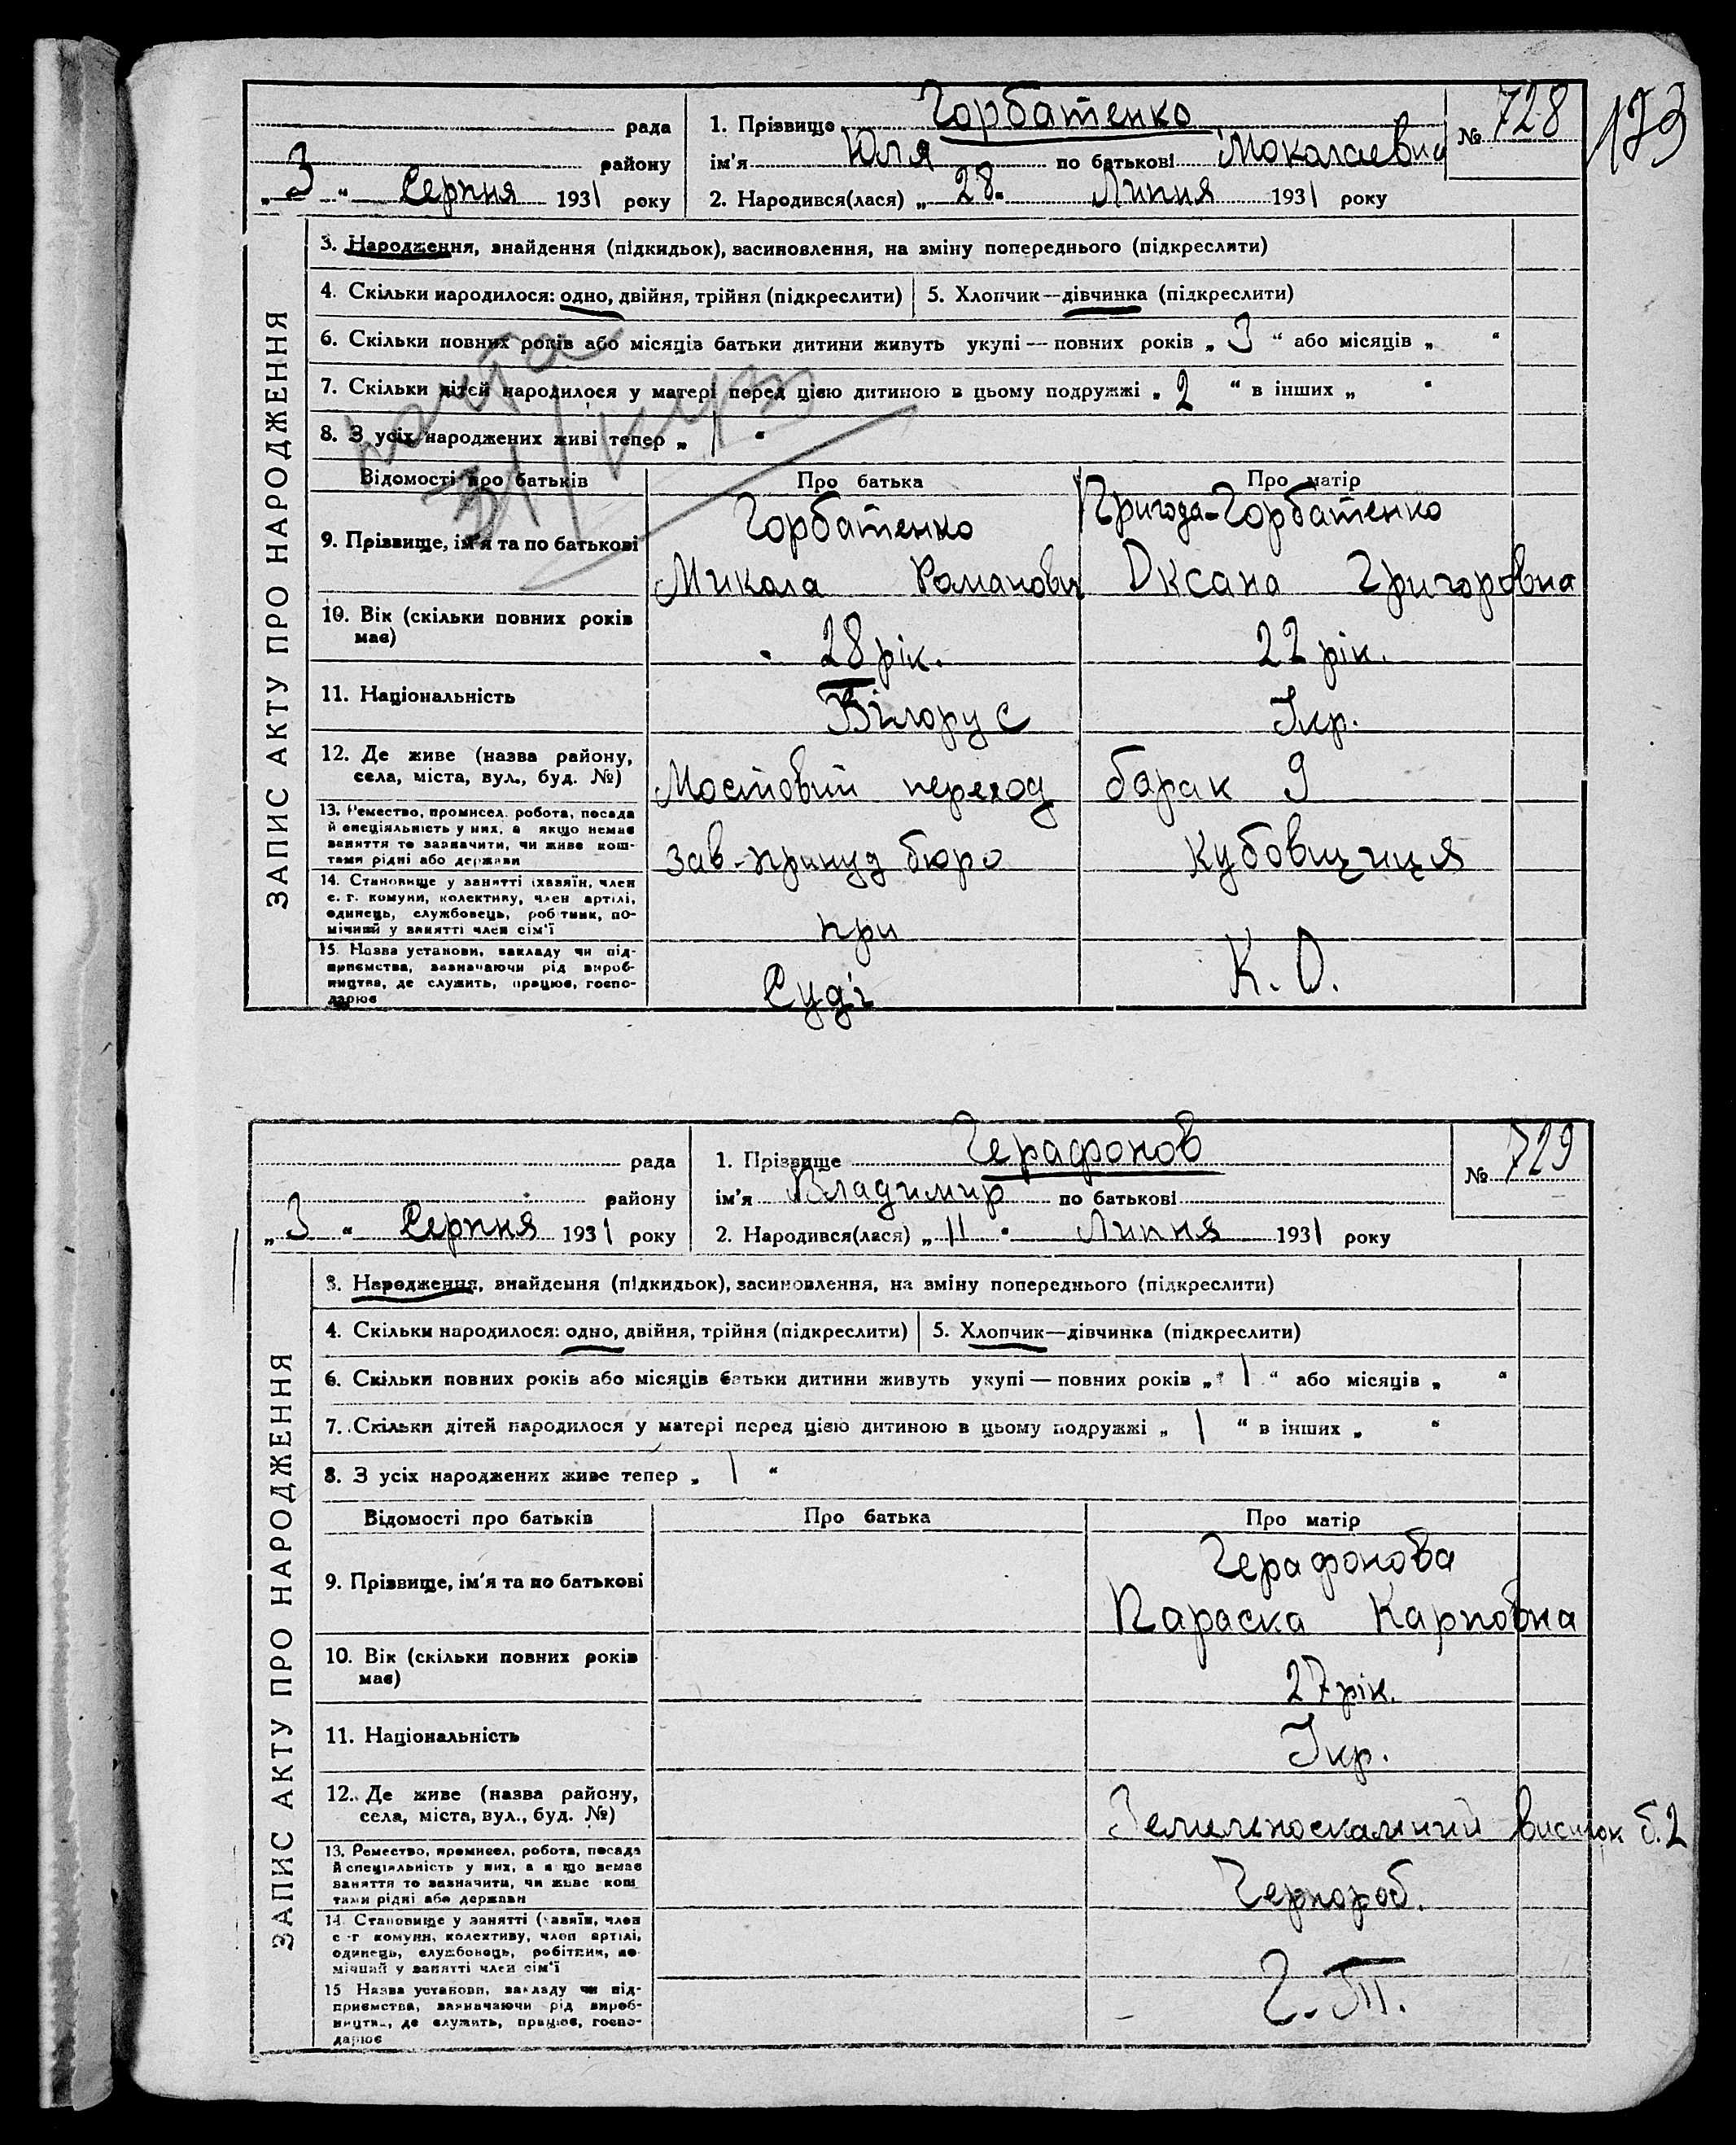 173
рада
району
„ 3 “ Серпня 1931 року
1. Прізвище Горбатенко
ім'я Юля по батькові
2. Народився(лася) „ 28 “ Липня 1931 року
№ 728
ЗАПИС АКТУ ПРО НАРОДЖЕННЯ
3. Народження, знайдення (підкидьок), засиновлення, на зміну попереднього (підкреслити)
4. Скільки народилося: одно, двійня, трійня (підкреслити)
5. Хлопчик—дівчинка (підкреслити)
6. Скільки повних років або місяців батьки дитини живуть укупі — повних років „ 3 “ або місяців „ “
7. Скільки дітей народилося у матері перед цією дитиною в цьому подружжі „ 2 “ в інших „ “
8. З усіх народжених живі тепер „ 1 “
Відомості про батьків
Про батька
Про матір
9. Прізвище, ім'я та по батькові
Горбатенко
Микола Романович
Пригода-Горбатенко
Оксана Григоровна
10. Вік (скільки повних років
має)
28 рік.
22 рік.
11. Національність
Білорус
Укр.
12. Де живе (назва району,
села, міста, вул., буд. №)
Мостовий переход
барак 9
13. Ремество, промисел, робота, посада
й спеціяльність у них, а якщо немає
заняття то зазначити, чи живе кош-
тами рідні або держави
зав-принуд бюро
14. Становище у занятті (хазяїн, член
с. г. комуни, колективу, член артілі,
одинець, службовець, робітник, по-
мічний у занятті член сім'ї
при
15. Назва установи, закладу чи під-
приємства, зазначаючи рід вироб-
ництва, де служить, працює, госпо-
дарює
Суді
К. О.
рада
району
„ 3 “ Серпня 1931 року
1. Прізвище Герафонов
ім'я Владимир по батькові
2. Народився(лася) „ 11 “ Липня 1931 року
№ 729
ЗАПИС АКТУ ПРО НАРОДЖЕННЯ
3. Народження, знайдення (підкидьок), засиновлення, на зміну попереднього (підкреслити)
4. Скільки народилося: одно, двійня, трійня (підкреслити)
5. Хлопчик—дівчинка (підкреслити)
6. Скільки повних років або місяців батьки дитини живуть укупі — повних років „ 1 “ або місяців „ “
7. Скільки дітей народилося у матері перед цією дитиною в цьому подружжі „ 1 “ в інших „ “
8. З усіх народжених живе тепер „ 1 “
Відомості про батьків
Про батька
Про матір
9. Прізвище, ім'я та по батькові
Герафонова
Параска Карповна
10. Вік (скільки повних років
має)
27 рік.
11. Національність
Укр.
12. Де живе (назва району,
села, міста, вул., буд. №)
б. 2
13. Ремество, промисел, робота, посада
й спеціяльність у них, а якщо немає
заняття то зазначити, чи живе кош-
тами рідні або держави
Чернороб.
14. Становище у занятті (хазяїн, член
с. г. комуни, колективу, член артілі,
одинець, службовець, робітник, по-
мічний у занятті член сім'ї
15. Назва установи, закладу чи під-
приємства, зазначаючи рід вироб-
ництва, де служить, працює, госпо-
дарює